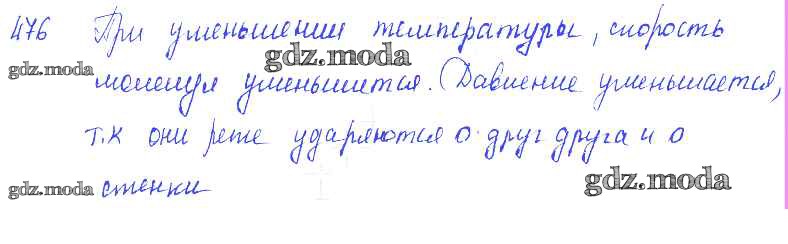 476 При уменьшении температуры, скорость
gdz.moda
gdz.moda молекул уменьшится. Давление уменьшается,
т.к они реже ударяются о друг друга и о
gdz.moda стенки gdz.moda